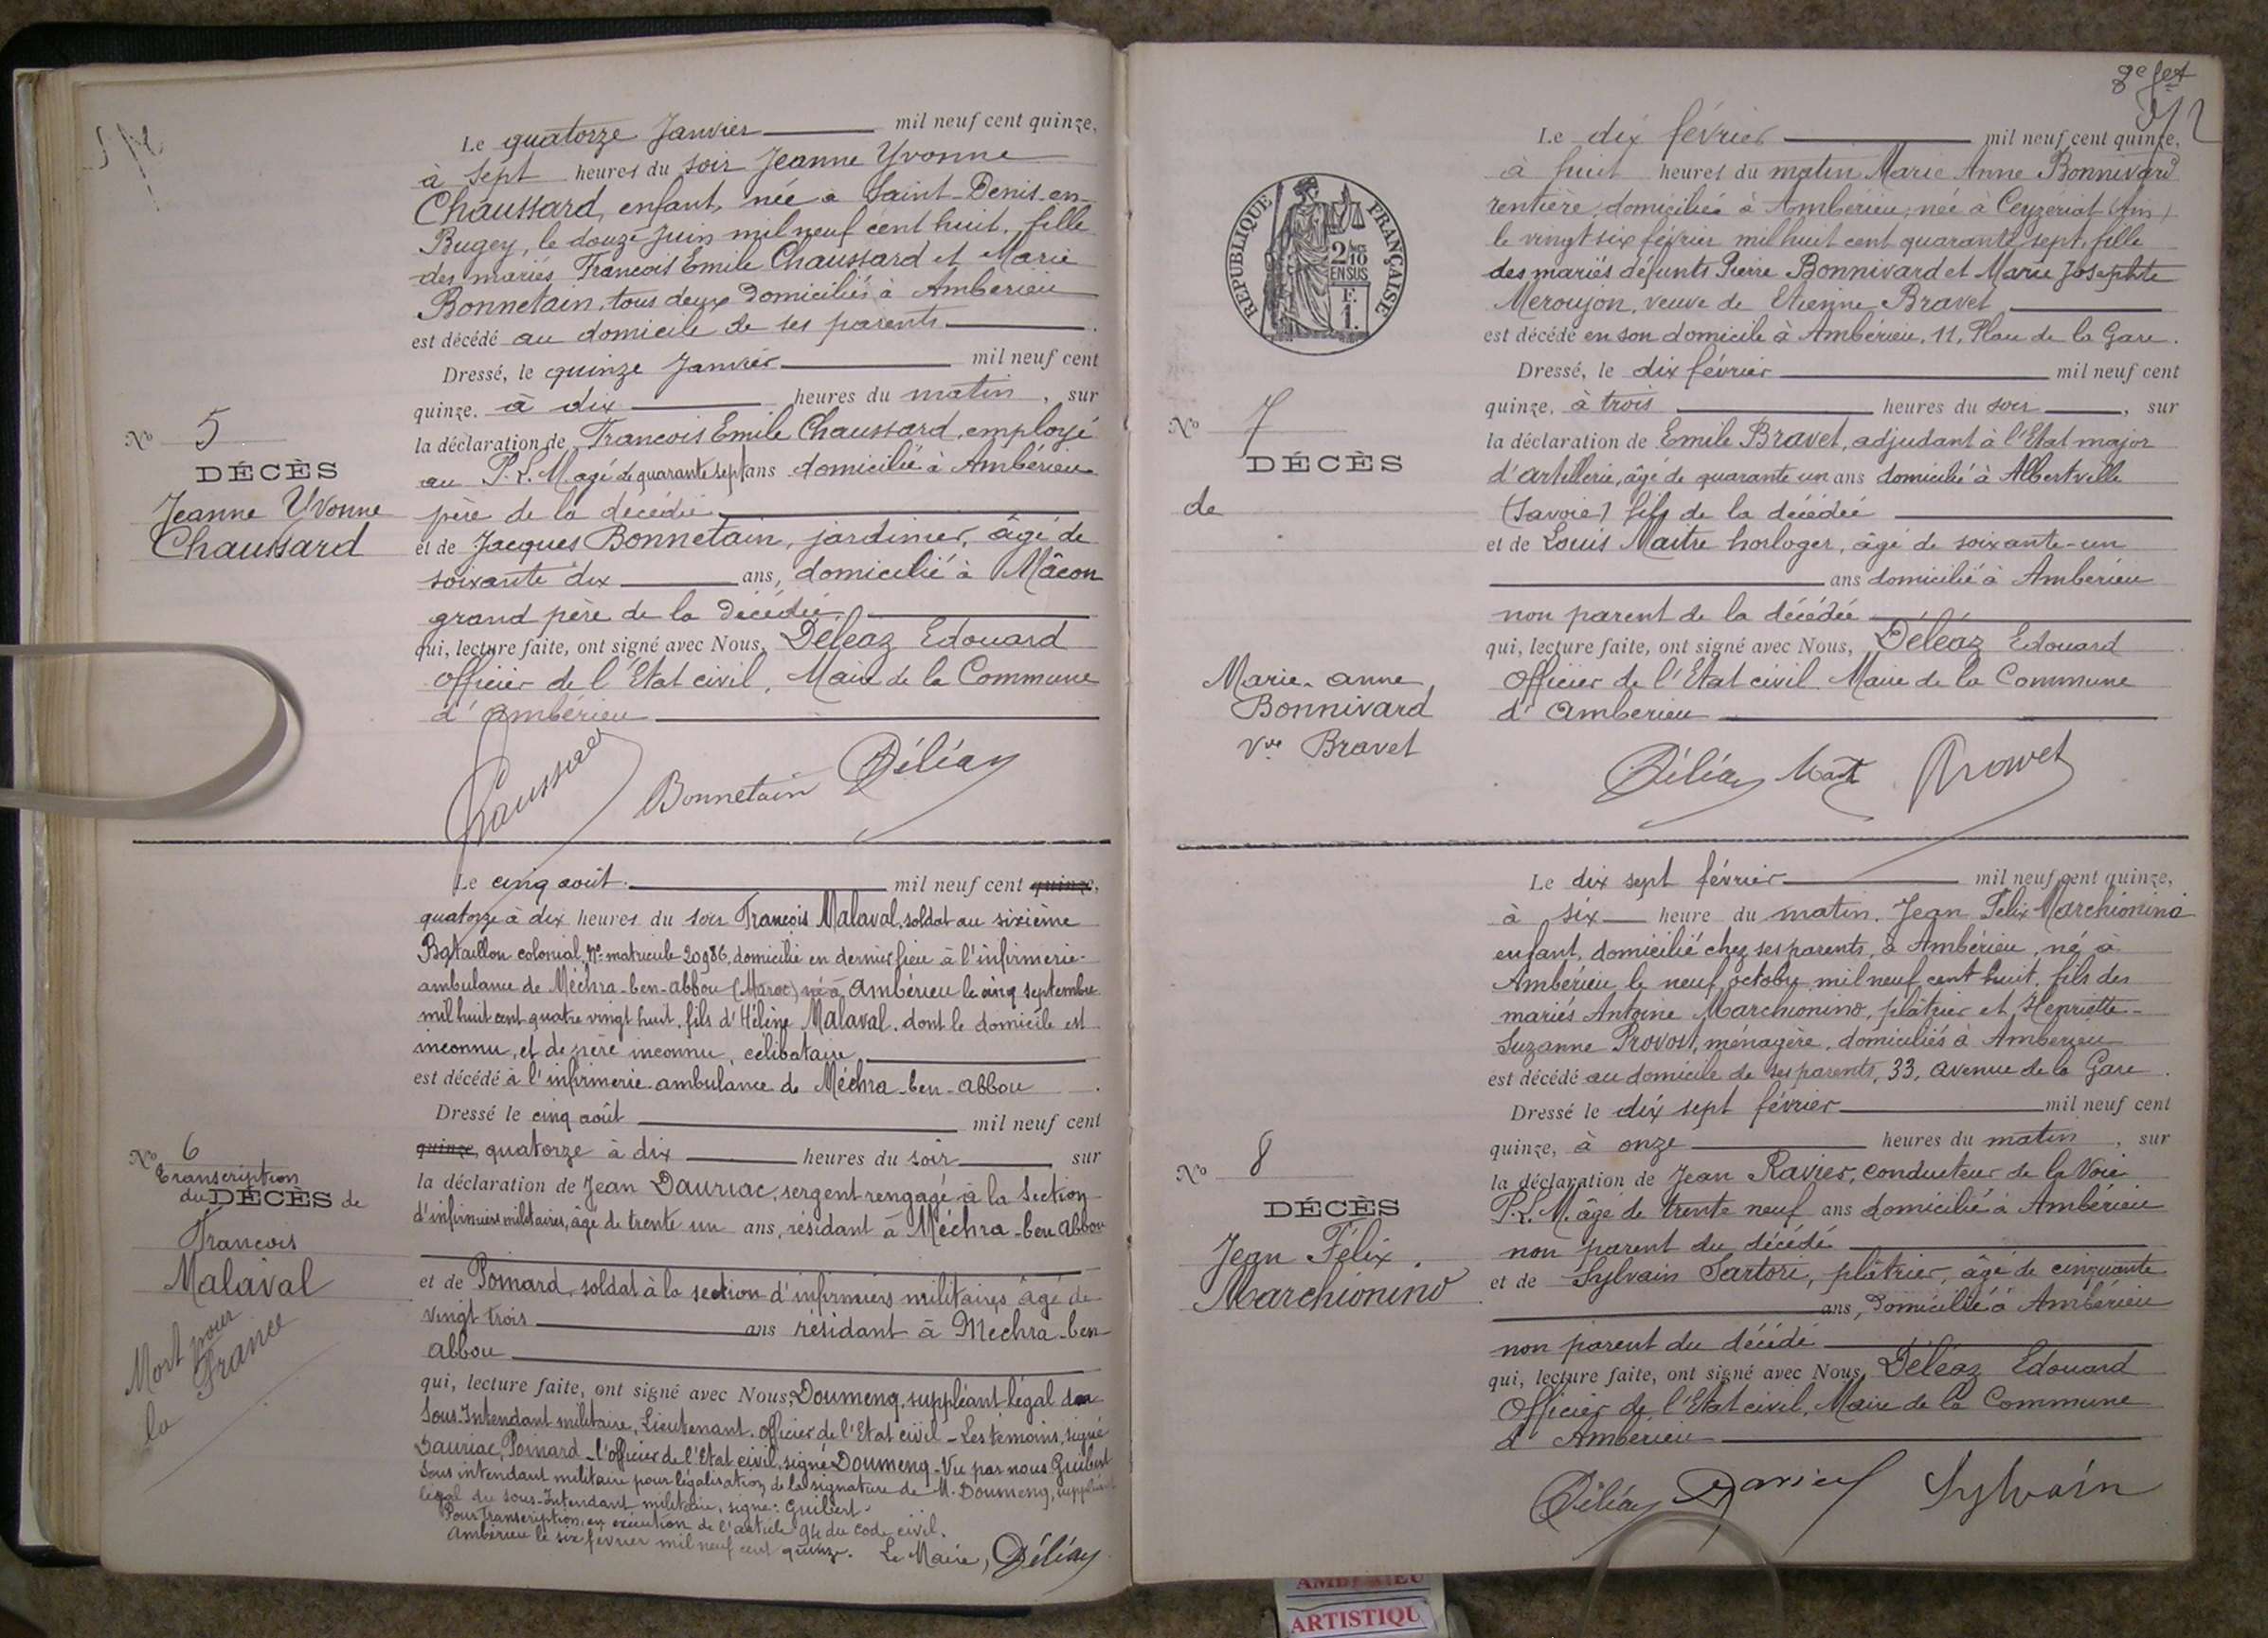 Le quatorze Janvier mil neuf cent quinze,
à sept heures du soir Jeanne Yvonne
Chaussard, enfant, née à Saint-Denis-en-
Bugey, le douze Juin mil neuf cent huit, fille
des mariés François Emile Chaussard et Marie
Bonnetain, tous deux domiciliés à Ambérieu
est décédé au domicile de ses parents.
Dressé, le quinze Janvier mil neuf cent
quinze. à dix heures du matin, sur
la déclaration de François Emile Chaussard, employé
au P.L.M. agé de quarante sept ans domicilié à Ambérieu
père de la décédée
et de Jacques Bonnetain, jardinier, âgé de
soixante dix ans, domicilié à Mâcon
grand père de la décédée
qui, lecture faite, ont signé avec Nous, Déléaz Edouard
Officier de l'Etat civil, Maire de la Commune
d'Ambérieu
Chaussard Bonnetain Déléaz
N° 5
DÉCÈS
Jeanne Yvonne
Chaussard
Le cinq août mil neuf cent quinze,
quatorze à dix heures du soir François Malaval, soldat au sixième
Bataillon colonial, N° matricule 20986, domicilié en dernier lieu à l'infirmerie-
ambulance de Méchra-ben-abbou (Maroc) né à Ambérieu le cinq septembre
mil huit cent quatre vingt huit, fils d'Hélène Malaval, dont le domicile est
inconnu, et de père inconnu, célibataire
est décédé à l'infirmerie-ambulance de Méchra-ben-abbou.
Dressé le cinq août mil neuf cent
quinze, quatorze à dix heures du soir sur
la déclaration de Jean Dauriac, sergent rengagé à la Section
d'infirmiers militaires, âgé de trente un ans, résidant à Méchra-ben Abbou
et de Poinard, soldat à la section d'infirmiers militaires âgé de
vingt trois ans résidant à Mechra-ben
abbou
qui, lecture faite, ont signé avec Nous, Doumenq, suppléant légal du
Sous-Intendant militaire, Lieutenant. Officier de l'Etat civil – Les témoins, signé
Dauriac, Poinard – l'officier de l'Etat civil, signé Doumenq – Vu par nous Guibert
Sous intendant militaire pour légalisation de la signature de M. Doumenq, suppléant
légal du sous-Intendant militaire, signé: Guibert.
Pour Transcription, en exécution de l'article 94 du code civil.
Ambérieu le six février mil neuf cent quinze. Le Maire, Déléaz
N° 6
Transcription
du DÉCÈS de
François
Malaval
Mort pour
la France
8e fet
Le dix février mil neuf cent quinze,
à huit heures du matin Marie Anne Bonnivard
rentière, domiciliée à Ambérieu, née à Ceyzeriat (Ain)
le vingt six février mil huit cent quarante sept, fille
des mariés défunts Pierre Bonnivard et Marie Josephte
Meroujon, veuve de Etienne Bravet
est décédé en son domicile à Ambérieu, 11, Place de la Gare.
Dressé, le dix février mil neuf cent
quinze, à trois heures du soir, sur
la déclaration de Emile Bravet, adjudant à l'Etat major
d'artillerie, âgé de quarante un ans domicilié à Albertville
(Savoie) fils de la décédée
et de Louis Maitre horloger, âgé de soixante-un
ans domicilié à Ambérieu
non parent de la décédée
qui, lecture faite, ont signé avec Nous, Déléaz Edouard
Officier de l'Etat civil. Maire de la Commune
d'Ambérieu
Déléaz
RÉPUBLIQUE FRANÇAISE
2/10
EN SUS
F.
1.
N° 7
DÉCÈS
de
Marie-anne
Bonnivard
Vve Bravet
Le dix sept février mil neuf cent quinze,
à six heure du matin, Jean Félix Marchionino
enfant, domicilié chez ses parents, à Ambérieu, né à
Ambérieu le neuf octobre mil neuf cent huit, fils des
mariés Antoine Marchionino, plâtrier et Henriette-
Suzanne Provost, ménagère, domiciliés à Ambérieu
est décédé au domicile de ses parents, 33, avenue de la Gare.
Dressé le dix sept février mil neuf cent
quinze, à onze heures du matin, sur
la déclaration de Jean Ravier, conducteur de la Voie
P.L.M. âgé de trente neuf ans domicilié à Ambérieu
non parent du décédé
et de Sylvain Sartori, plâtrier, âgé de cinquante
ans, domicilié à Ambérieu
non parent du décédé
qui, lecture faite, ont signé avec Nous, Déléaz Edouard
Officier de l'Etat civil, Maire de la Commune
d'Ambérieu
Déléaz Ravier Sylvain
N° 8
DÉCÈS
Jean Félix
Marchionino
AMBERIEU
ARTISTIQU